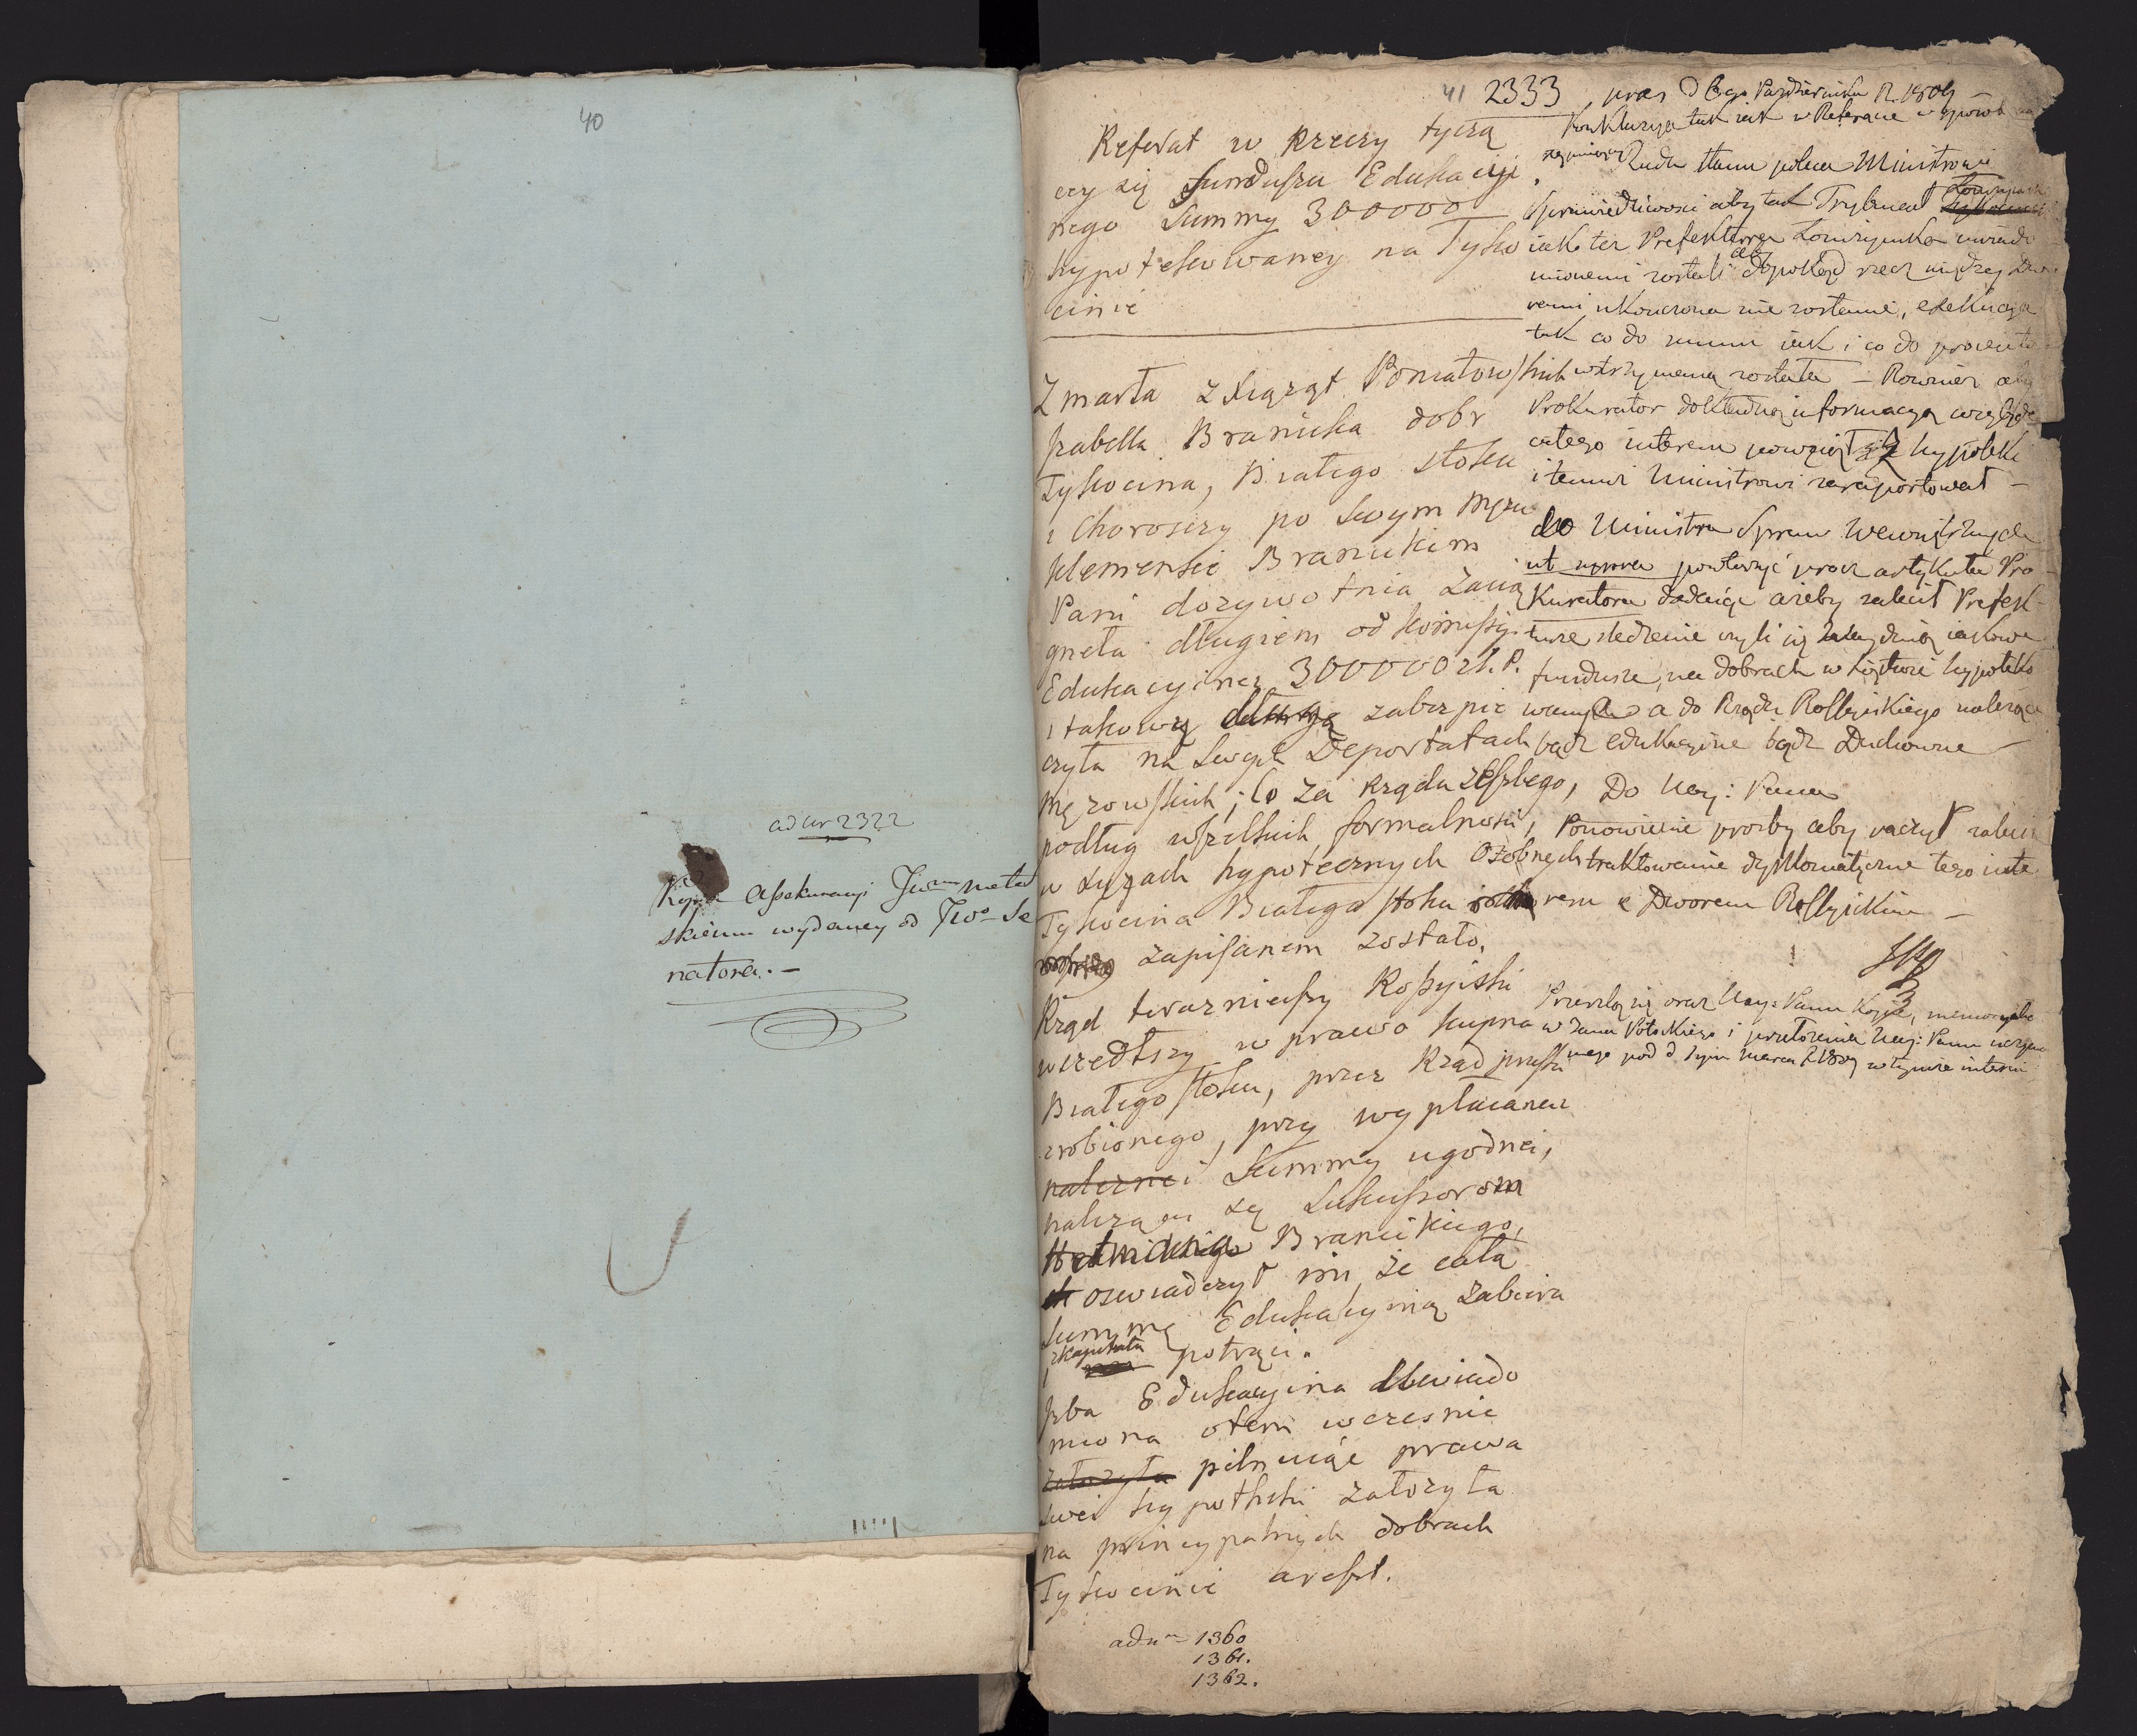 40
ad nr 2322
Kopja Assekuracyi
skiemu wydaney od JWo Se
natora. —
41 2333
Referat w Rzeczy tyczą
cey się Funduszu Edukacyi
nego Summy 300000
hypotekowaney na Tyko
cinie
Zmarła z Xiążąt Poniatowskich
Izabella Branicka dobr
Tykocina, Białego stoku
i Choroszczy po swym mężu
Klemensie Branickim
Pani dozywotnia zacią
gneła długiem od Kommissyi
Edukacyinei 300000 zł. P.
i takowy zabezpie
czyła na swych Deportatach
mężowskich; Co za Rządu zeszłego,
podług wszelkich formalnosci,
w xięgach hypotecznych osobnych
Tykocina Białegostoku
zapisanem zostało.
Rząd teraznieyszy Rossyiski
wszedłszy w prawo kupna
Białegostoku, przez Rząd pruski
zrobionego, przy wypłacaniu
naleznei Summy ugodnei,
należącei się Sukcessorom
Hetmana Branickiego,
oswiadczył im że całą
Summę Edukacyiną zabiera
i z kapitału potrąci.
Izba Edukacyina uwiado
miona otem wczesnie
założyła pilnuiąc prawa
swei hypotheki założyła
na pryncypalnych dobrach
Tykocinie areszt.
ad nm 1360
1361.
1362.
pras d Października R. 1809
Konkluzya tak iak w Referacie w sposob
Rada Stanu poleca Ministrowi
Sprawiedliwosci aby tak Trybunał Łomżyński
iako tez Prefektura Łomzyńska uwiado
mionemi zostali aby dopokąd rzecz między Dwo
rami ukonczona nie zostanie, exekucya
tak co do summ iak i co do procentu
wstrzymaną została — Rownież aby
Prokurator dokładną informacyą względem
całego interesu powziął z hypoteki
i temuż Ministrowi zaraportował —
do Ministra Spraw Wewnętrznych
ut supra powtorzyć procz artykułu Pro
kuratora dodaiąc ażeby zalecił Prefek-
turze sledzenie czyli się znayduią iakowe
fundusze na dobrach w Xięstwie hypoteko
wanych a do Rządu Rossyiskiego należące
bądz edukacyine bądz Duchowne —
Do Nay: Pana
Ponowienie prosby aby raczył zalecić
traktowanie dyplomatyczne tego inte
resu z Dworem Rossyiskim —
Przesłą się oraz Nay: Panu Kopie, memoryału
w Jana Potockiego i przełożenia Nay: Panu uczynio
nego pod d. 1ym marca R 1809 w tymże interesie